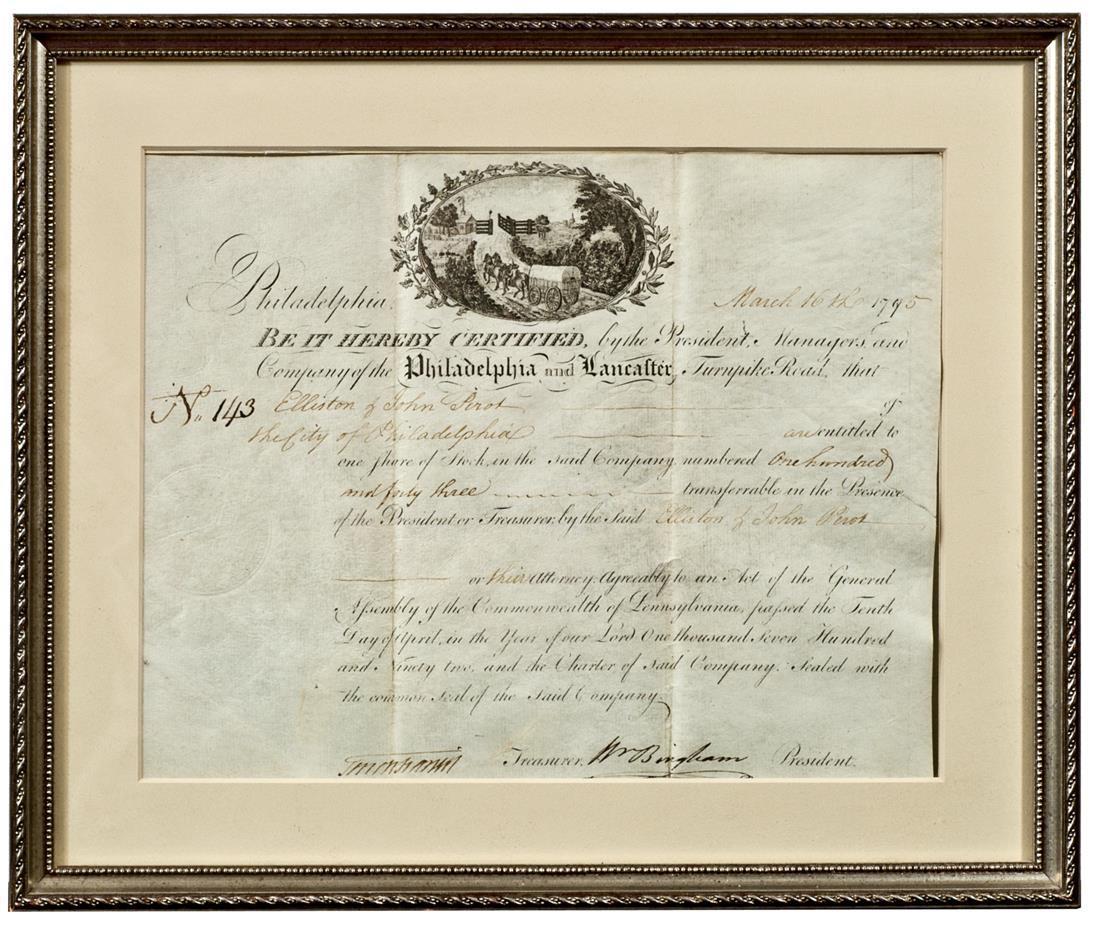 Philadelphia, March 16th 1795
BE IT HEREBY CERTIFIED, by the President, Managers, and
Company of the Philadelphia and Lancaster, Turnpike Road, that
No. 143 Elliston & John Perot of
the City of Philadelphia are entitled to
one Share of Stock, in the Said Company, numbered One hundred
and forty three transferrable in the Presence
of the President or Treasurer, by the Said Elliston & John Perot
or their Attorney, Agreeably to an Act of the General
Assembly of the Commonwealth of Pennsylvania, passed the Tenth
Day of April, in the Year of our Lord One thousand Seven Hundred
and Ninety two, and the Charter of Said Company. Sealed with
the common Seal of the Said Company.
Treasurer, Wm Bingham President.